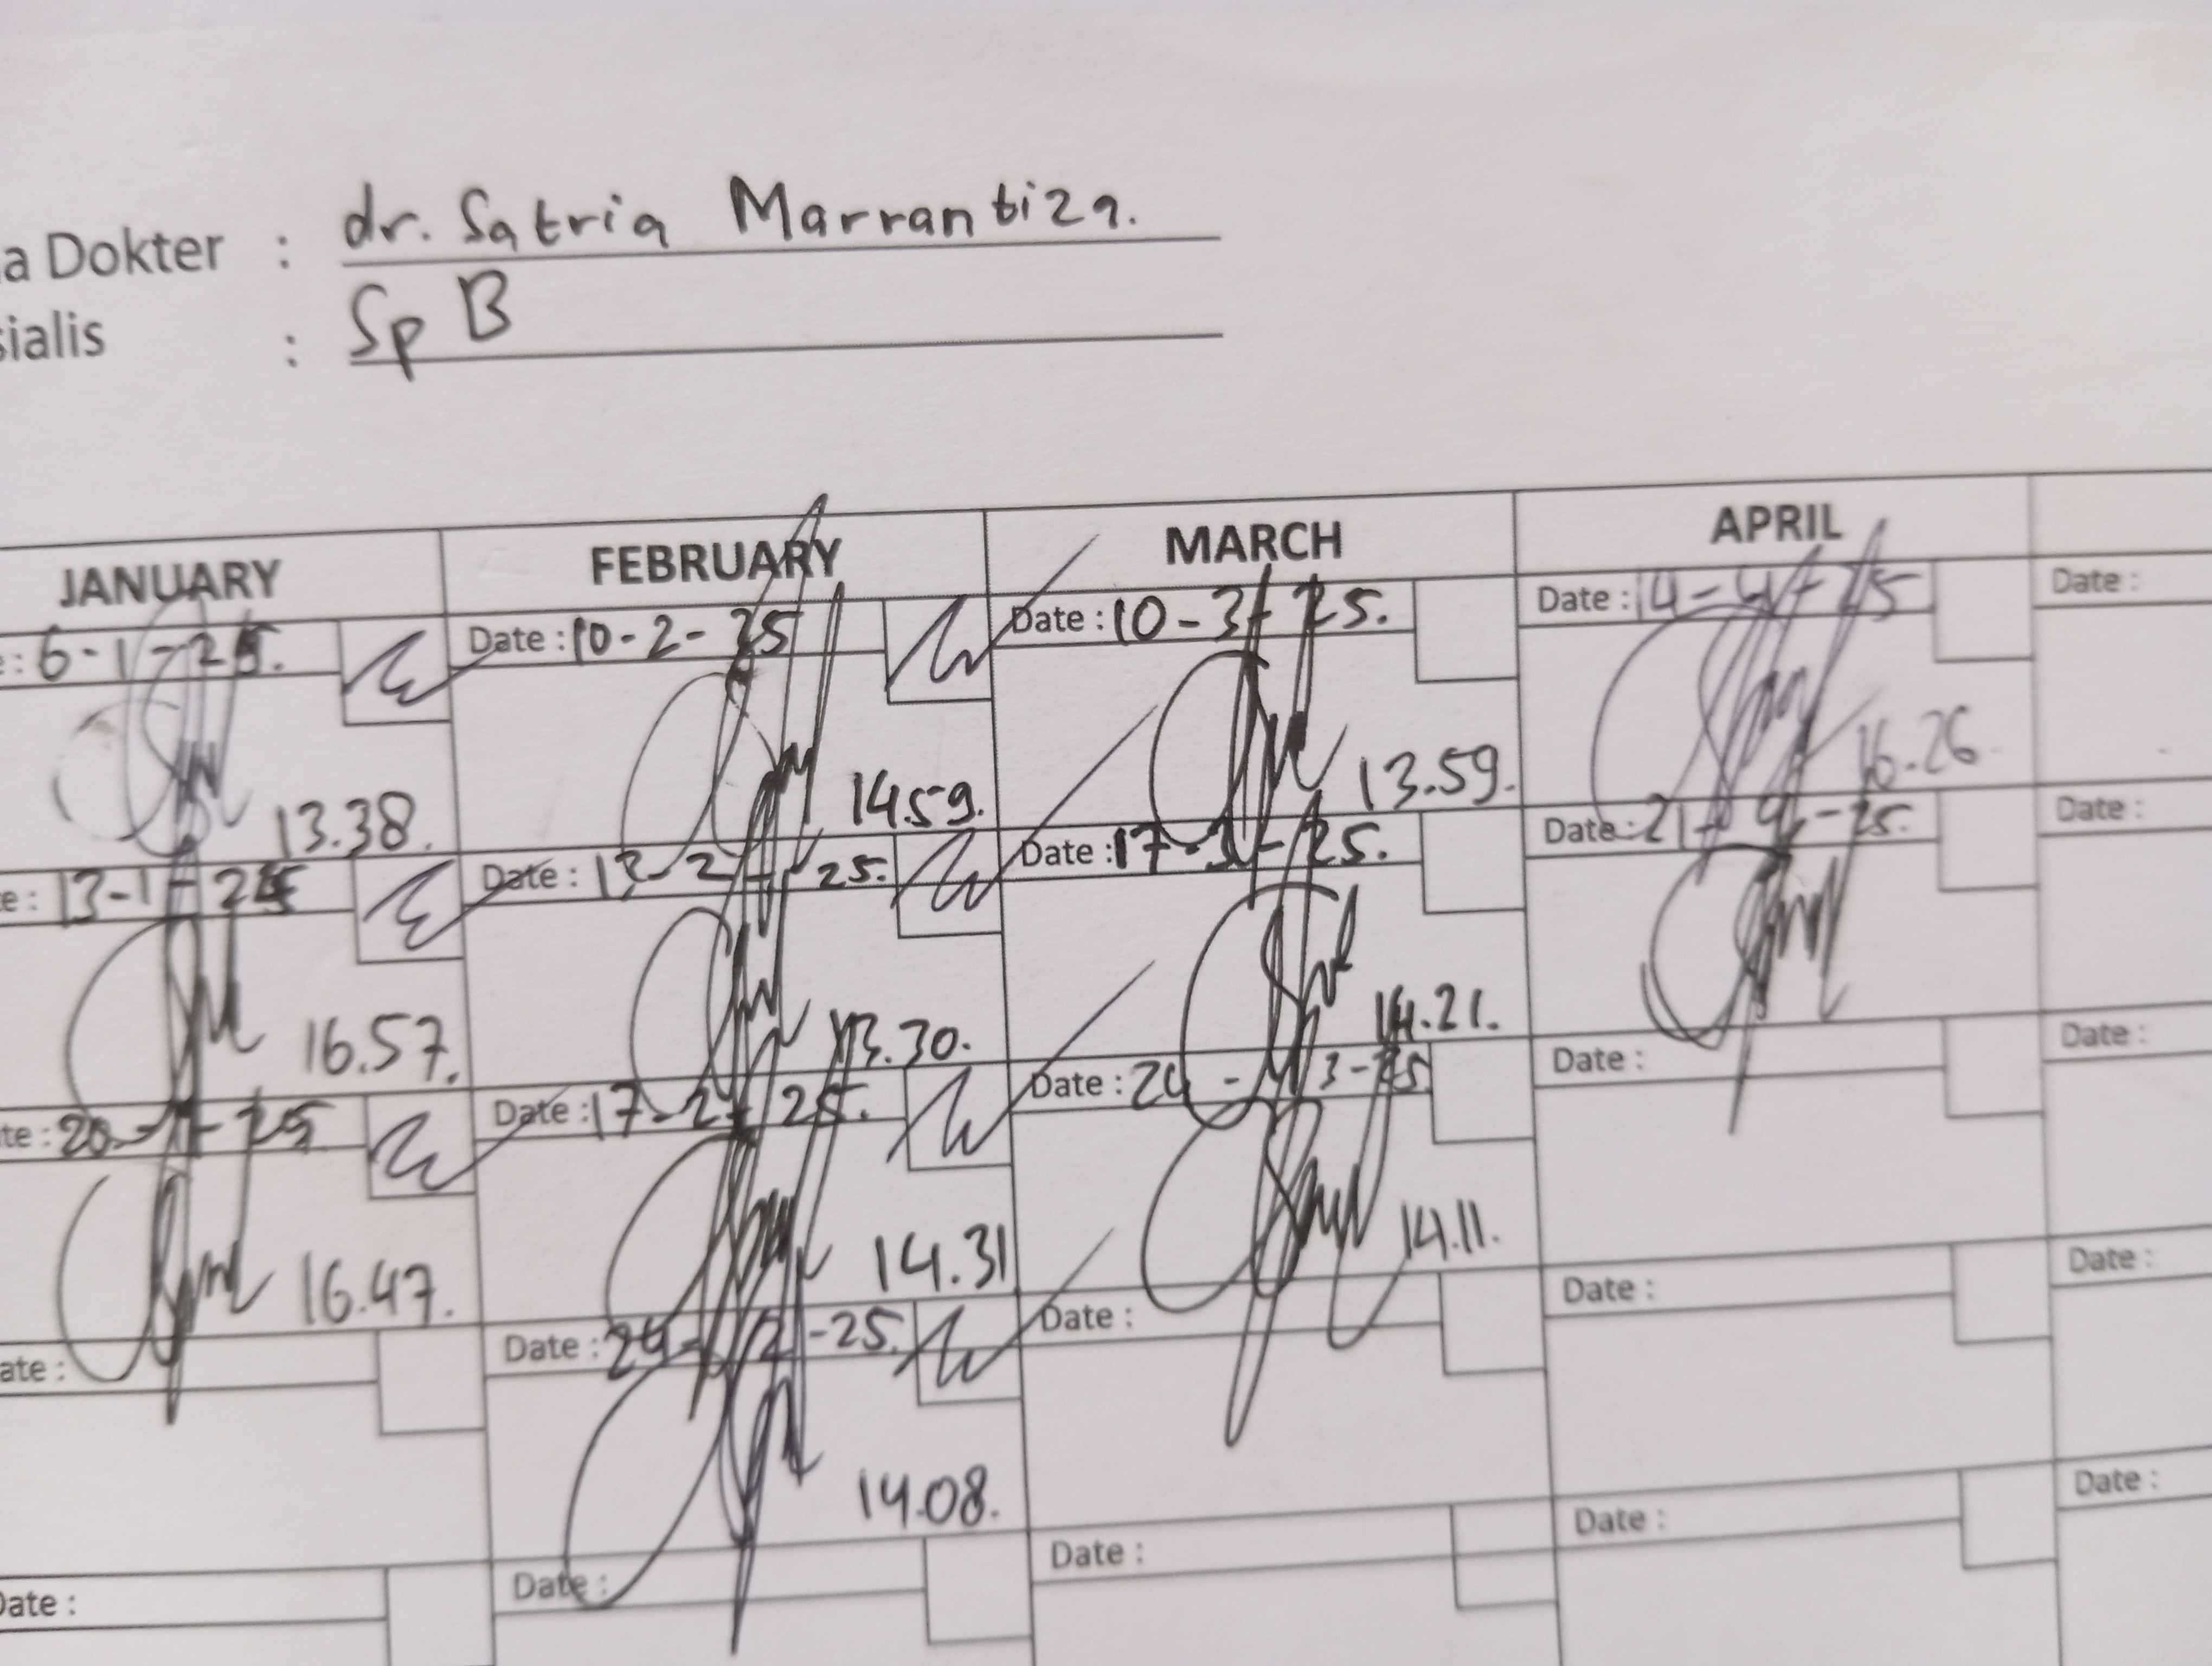 a Dokter : dr. Satria Marrantiza.
sialis : Sp B
JANUARY FEBRUARY MARCH APRIL
e: 6-1-25. Date: 10-2-25 Date: 10-3-25. Date: 14-4-25 Date:
13.38. 14.59. 13.59. 16.26
e: 13-1-25 Date: 13-2-25. Date: 17-3-25. Date: 21-4-25. Date:
16.57. 13.30. 14.21.
te: 20-1-25 Date: 17-2-25. Date: 24-3-25 Date: Date:
16.47. 14.31 14.11.
ate: Date: 24-2-25. Date: Date: Date:
14.08.
Date: Date: Date: Date: Date: